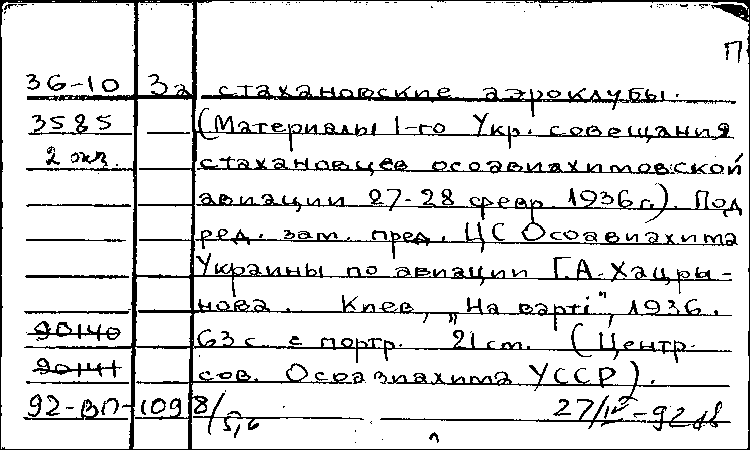 П
36-10 За стахановские аэроклубы.
3585 (Материалы 1-го Укр. совещания
2 экз. стахановцев осоавиахимовской
авиации 27-28 февр. 1936 г.). Под
ред. зам. пред. ЦС Осоавиахима
Украины по авиации Г.А. Хацры-
нова. Киев, „На варті", 1936.
90140 63 с. с портр. 21 cm. (Центр.
90141 сов. Осоавиахима УССР).
92-ВП-1098/
5,6 27/IV-92